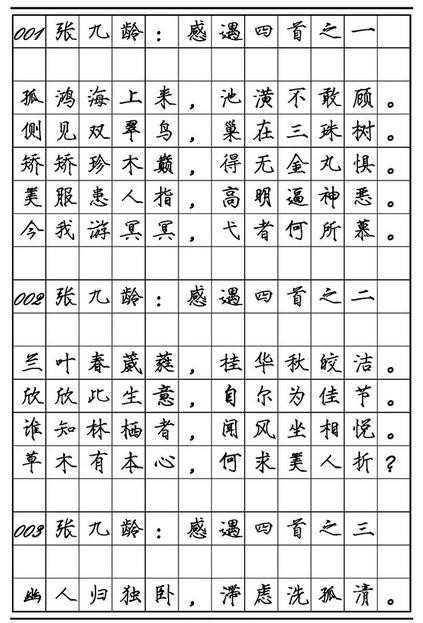 001张九龄：感遇四首之一
孤鸿海上来，池潢不敢顾。
侧见双翠鸟，巢在三珠树。
矫矫珍木巅，得无金丸惧。
美服患人指，高明逼神恶。
今我游冥冥，弋者何所慕。
002张九龄：感遇四首之二
兰叶春葳蕤，桂华秋皎洁。
欣欣此生意，自尔为佳节。
谁知林栖者，闻风坐相悦。
草木有本心，何求美人折？
003张九龄：感遇四首之三
幽人归独卧，滞虑洗孤清。